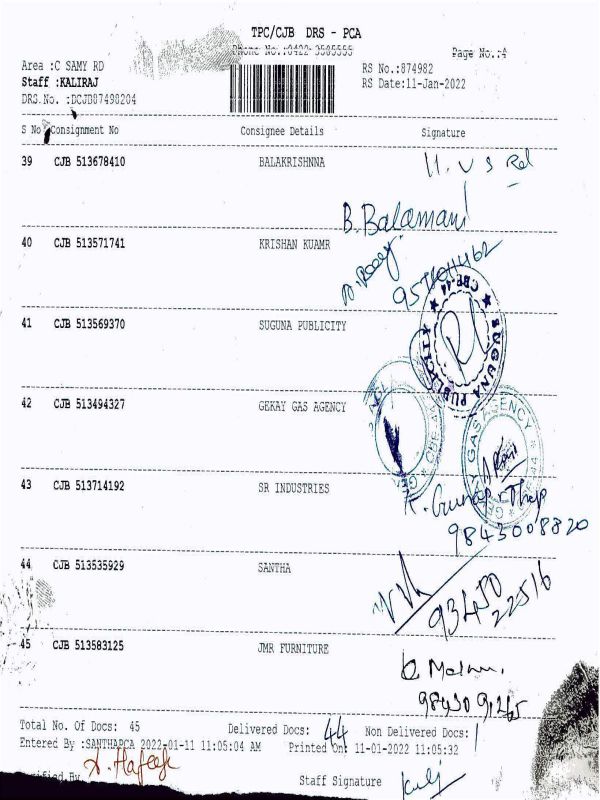 TPC/CJB DRS - PCA
Phone No.:0422-3505555
Page No.:4
Area :C SAMY RD
RS No.:874982
Staff :KALIRAJ
RS Date:11-Jan-2022
DRS.No. :DCJD07490204
S No Consignment No Consignee Details Signature
39 CJB 513678410 BALAKRISHNNA
B. Balamani
40 CJB 513571741 KRISHAN KUAMR
41 CJB 513569370 SUGUNA PUBLICITY
SUGUNA PUBLICITY
42 CJB 513494327 GEKAY GAS AGENCY
GAS AGENCY
43 CJB 513714192 SR INDUSTRIES
9843008820
44 CJB 513535929 SANTHA
93450
22516
45 CJB 513583125 JMR FURNITURE
Total No. Of Docs: 45 Delivered Docs: 44 Non Delivered Docs: 1
Entered By :SANTHAPCA 2022-01-11 11:05:04 AM Printed On: 11-01-2022 11:05:32
Staff Signature